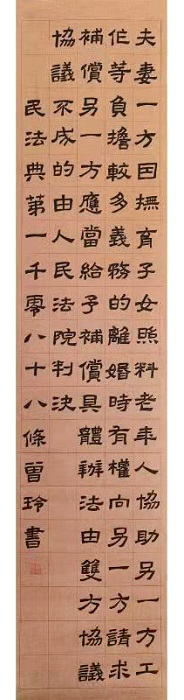 夫妻一方因撫育子女照料老年人協助另一方工
作等負擔較多義務的離婚時有權向另一方請求
補償另一方應當給予補償具體辦法由雙方協議
協議不成的由人民法院判決
民法典第一千零八十八條曾玲書